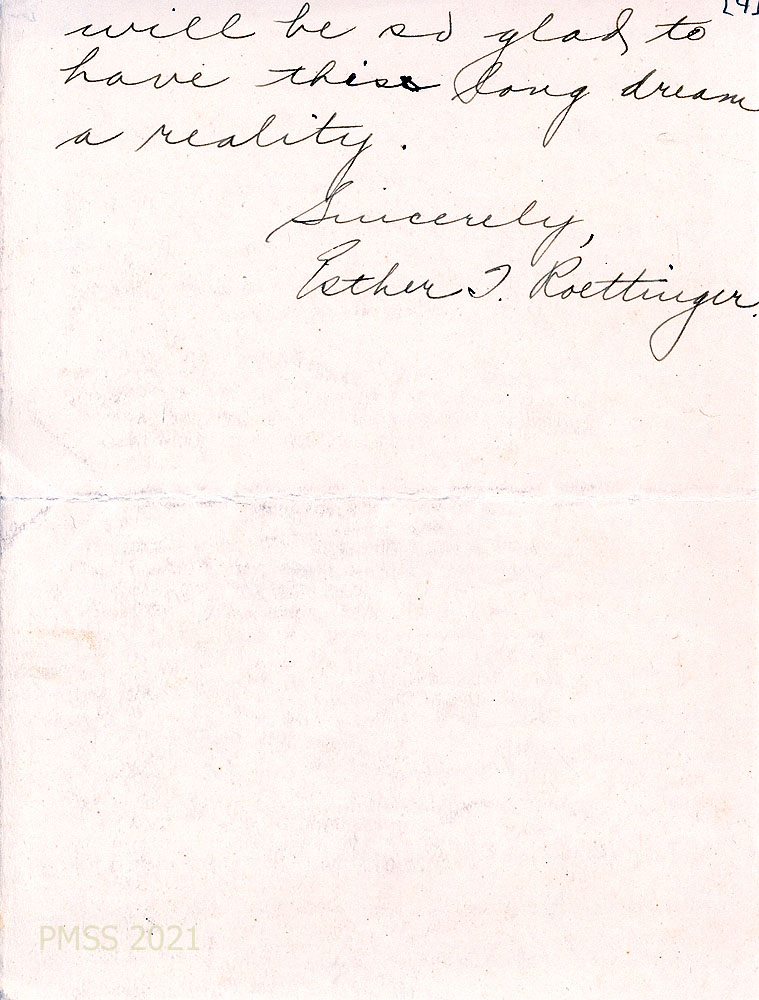 [4]
will be so glad to
have this long dream
a reality.
Sincerely,
Esther T. Roettinger.
PMSS 2021